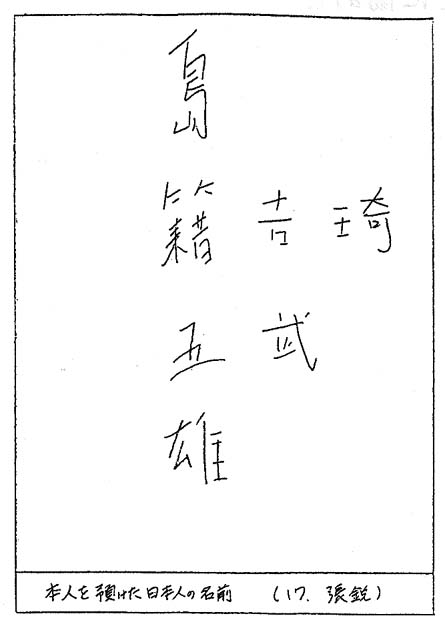 琦
吉武
島籍五雄
本人を預けた日本人の名前 (17. 張鋭)